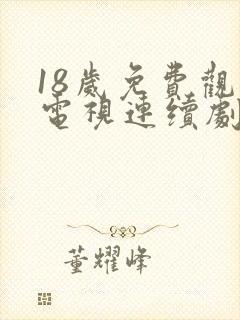 18歲免費觀
電視連續劇
董耀峰